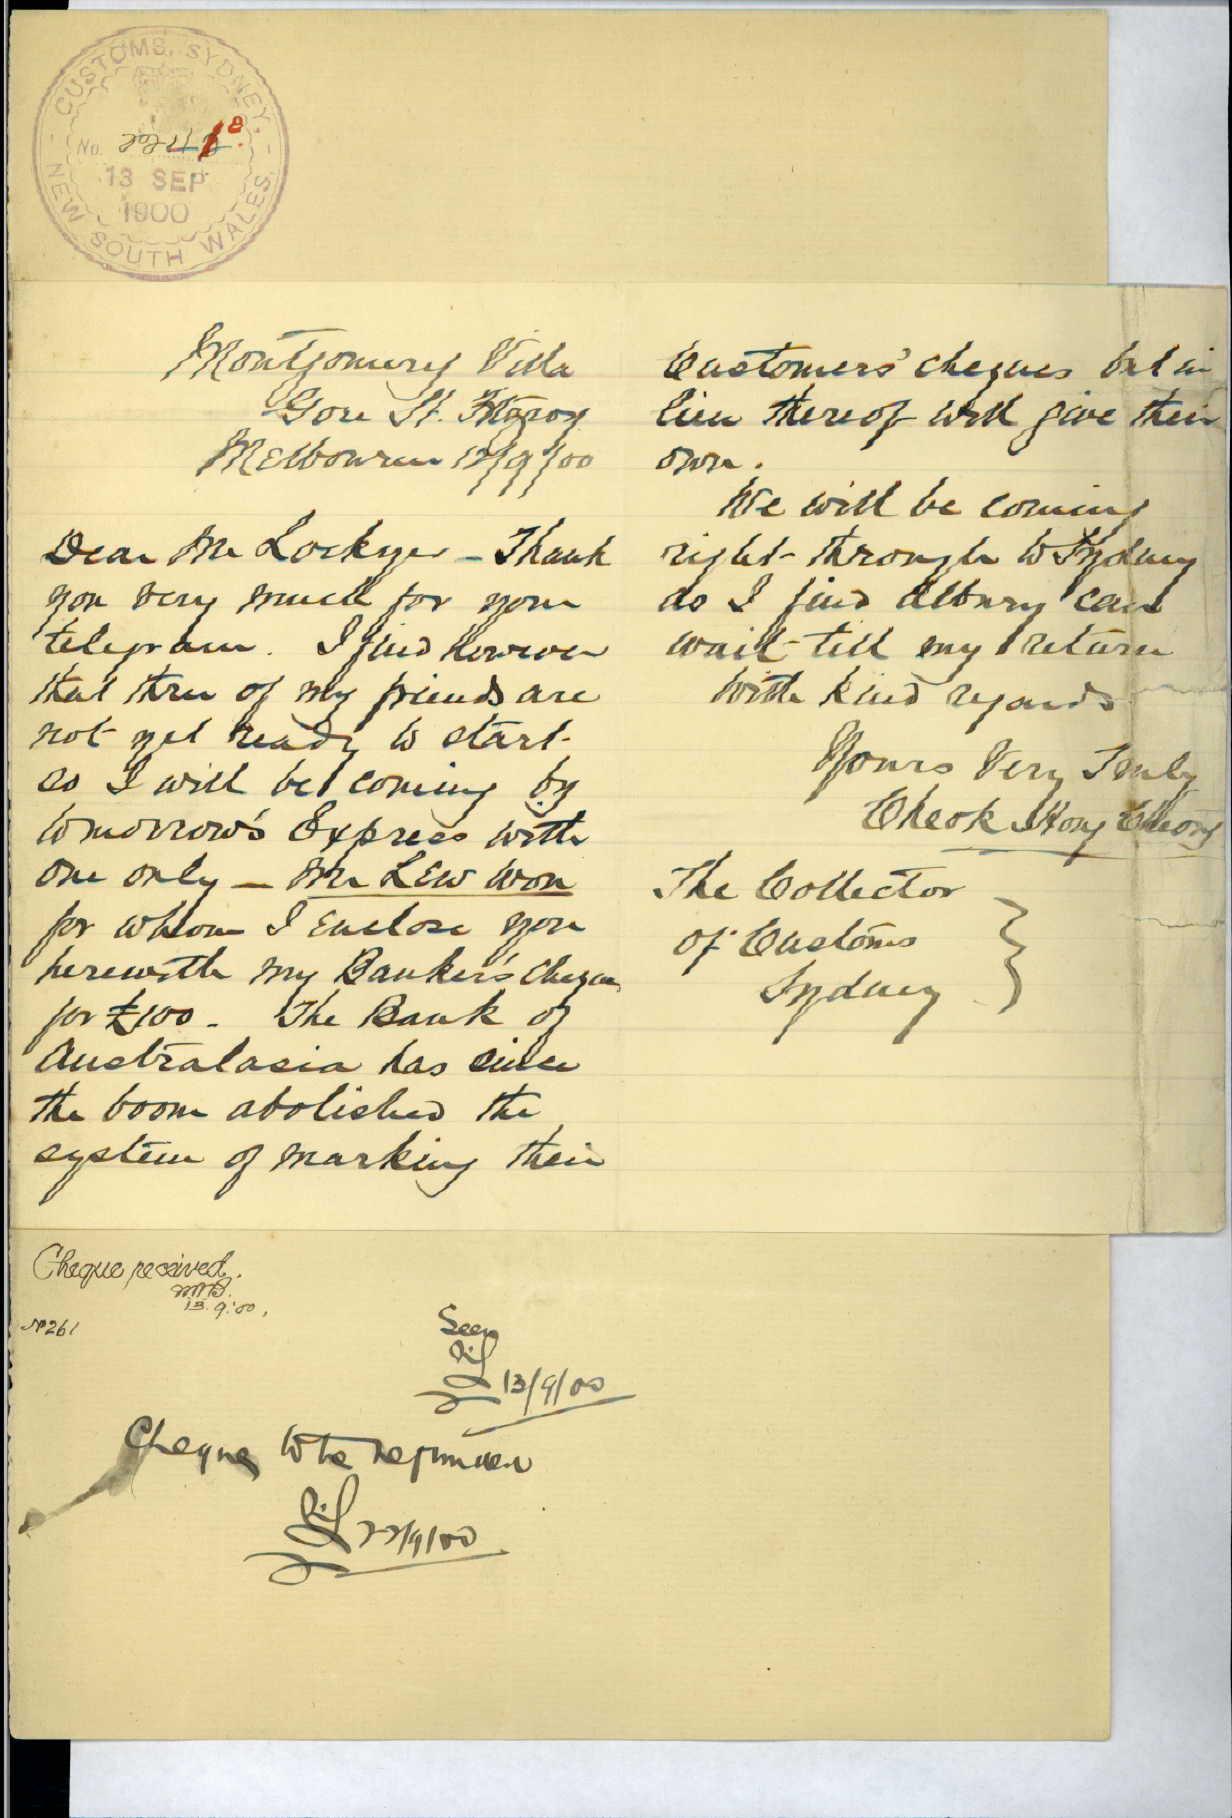 CUSTOMS, SYDNEY,
NEW SOUTH WALES
No.
13 SEP
1900
Montgomery Villa
Gore St. Fitzroy
Melbourne 12/9/00
Dear Mr Lockyer - Thank
you very much for your
telegram. I find however
that three of my friends are
not yet ready to start
so I will be coming by
tomorrow's Express with
one only - Mr Lew Won
for whom I enclose you
herewith my Banker's cheque
for £100 - The Bank of
Australasia has since
the boom abolished the
system of marking their
Customers' cheques but in
lieu thereof will give their
own.
We will be coming
right through to Sydney
as I find Albury can
wait till my return
With kind regards
Yours Very Truly
Cheok Hong Cheong
The Collector
of Customs
Sydney
Cheque received.
13.9.00.
No 261
Seen
13/9/00
Cheque to be returned
22/9/00